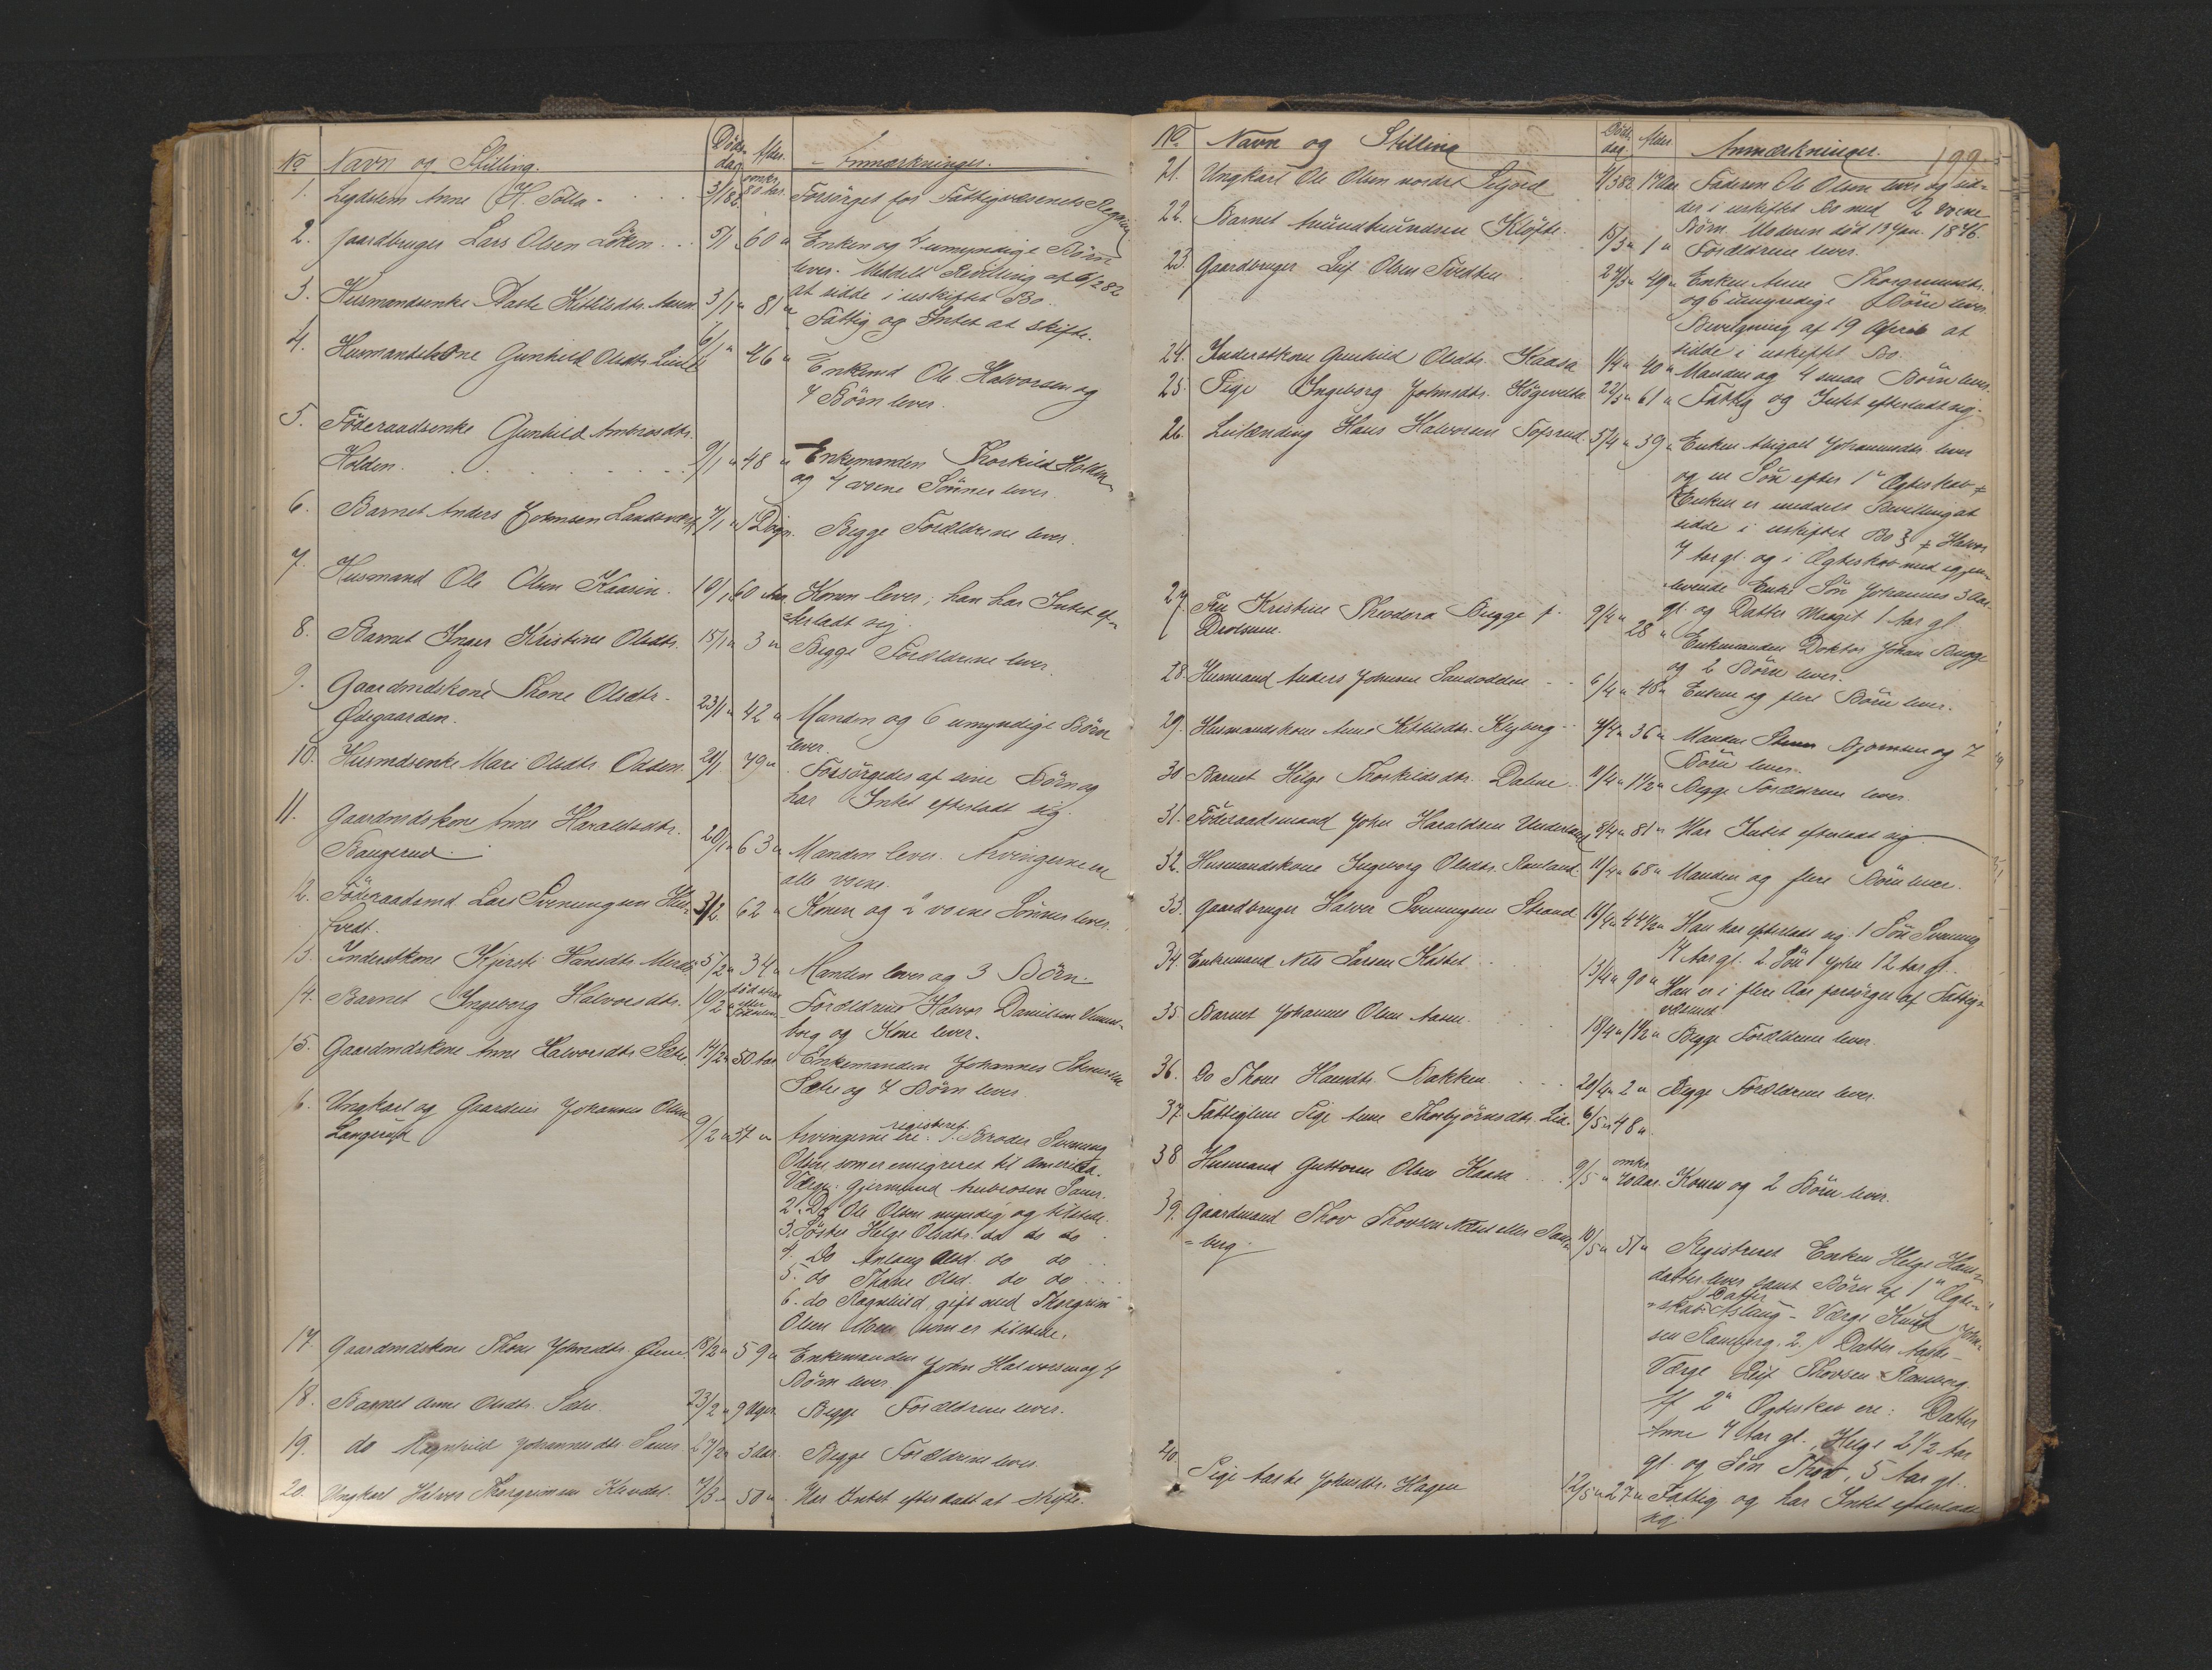 No Navn og Stilling. Döds-dag Alder. Anmærkninger.
1. Legdslem Anne H. Tolla 3/1 82 omkr. 80 Aar. Forsörget for Fattigvæsenets Regning
2. Gaardbruger Lars Olsen Löken 5/1 " 60 " Enken og 7 umyndige Börn
lever. Meddelt Bevilling af 6/2 82
at sidde i uskiftet Bo.
3. Husmandsenke Aaste Kittilsdtr. Aasen 3/1 " 81 " Fattig og Intet at skifte.
4. Husmandskone Gunhild Olsdtr. 6/1 " 46 " Enkemd Ole Halvorsen og
7 Börn lever.
5. Föderaadsenke Gunhild Ambrosdtr.
Holden. 9/1 " 48 " Enkemanden Thorkild Holden
og 4 voxne Sönner lever.
6. Barnet Anders Johnsen Landsværk 7/1 " 1 Dögn. Begge Forældrene lever.
7. Husmand Ole Olsen Kaasin. 16/1 60 Aar Konen lever; han har Intet ef-
terladt sig.
8. Barnet Inger Kristine Olsdtr. 15/1 " 3 " Begge Forældrene lever.
9. Gaardmdskone Thone Olsdtr.
Ödegaarden. 23/1 " 42 " Manden og 6 umyndige Börn
lever.
10. Husmdsenke Mari Olsdtr. Odden. 21/1 79 " Forsörgedes af sine Börn og
har Intet efterladt sig.
11. Gaardmdskone Anne Haraldsdtr.
Baugerud. 20/1 " 63 " Manden lever. Arvingerne ere
alle voxne.
12. Föderaadsmd Lars Svenungsen
tvedt. 3/2. 62 " Konen og 2 voxne Sönner lever.
13. Inderstkone Kjersti Hansdtr. 5/2 " 34 " Manden lever og 3 Börn.
14. Barnet Ingeborg Halvorsdtr. 10/2 " död strax efter Födselen Forældrene Halvor Danielsen
borg og Kone lever.
15. Gaardmdskone Anne Halvorsdtr. Sætre. 14/2 " 50 Aar Enkemanden Johannes Stenersen
Sætre og 7 Börn lever.
16. Ungkarl og Gaardeier Johannes Olsen
Langerud 9/2 " 37 " registeret. Arvingerne ere: 1. Broder Svenung
Olsen som er emigreret til Amerika.
Værge: Gjermund Ambrosen Sauer.
2. Do Ole Olsen myndig og tilstede.
3. Söster Helge Olsdtr. do do do
4. Do Anlaug Olsd. do do
5. do Thone Olsd. do do
6. do Ragnhild, gift med Thorgrim
Olsen Moen som er tilstede.
17. Gaardmdskone Thone Johnsdtr. 18/2 " 59 " Enkemanden John Halvorsen og 4
Börn lever.
18. Barnet Anne Olsdtr. Sætre 23/2 " 9 Uger. Begge Forældrene lever.
19. do Ragnhild Johannesdtr. Sauer 27/2 " 3 Aar. Begge Forældrene lever.
20. Ungkarl Halvor Thorgrimsen 7/3 " 50 " Har Intet efterladt at skifte.
No Navn og Stilling Döds-dag Alder Anmærkninger. 199
21. Ungkarl Ole Olsen nordre Seljord 4/3 82 17 Aar Faderen Ole Olsen lever og sid-
der i uskiftet Bo med 2 voxne
Börn. Moderen död 13 Jan. 1876.
22. Barnet Amund Klöfte. 15/3 " 1 " Forældrene lever.
23. Gaardbruger Leif Olsen Tvedten 24/3 " 49 " Enken Anne Thorgrimsdtr.
og 6 umyndige Börn lever.
Bevilgning af 19 April at
sidde i uskiftet Bo.
24. Inderstkone Gunhild Olsdtr. Kaasa 1/4 " 40 " Manden og 4 smaa Börn lever.
25. Pige Ingeborg Johnsdtr. 22/3 " 61 " Fattig og Intet efterladt sig.
26. Leilænding Hans Halvorsen Tofsrud 5/4 " 39 " Enken Abigael Johannesdtr. lever
og en Sön efter 1ste Ægteskab
Enken er meddelt Bevilling at
sidde i uskiftet Bo Halvor
7 Aar gl. og i Ægteskab med igjen-
levende Enke Sön Johannes 3 Aar
gl. og Datter Margit 1 Aar gl.
27. Fru Kristine Theodora Bugge f.
Drolsum. 9/4 " 28 " Enkemanden Doktor Johan Bugge
og 2 Börn lever.
28. Husmand Anders Johnsen Sandodden 6/4 " 48 " Enken og flere Börn lever.
29. Husmandskone Anne Kittilsdtr. 7/4 " 36 " Manden Bjornsen og 7
Börn lever.
30 Barnet Helge Thorkildsdtr. Dalene 11/4 " 1 1/2 " Begge Forældrene lever.
31. Föderaadsmand John Haraldsen 8/4 " 81 " Har Intet efterladt sig
32. Husmandskone Ingeborg Olsdtr. Rauland 11/4 " 68 " Manden og flere Börn lever.
33. Gaardbruger Halvor Svenungsen Strand 16/4 " 44 1/2 " Han har efterladt sig 1 Sön Svenung
14 Aar gl. 2. Sön John 12 Aar gl.
34. Enkemand Nils Larsen 13/4 " 90 " Han er i flere Aar forsörget af Fattig-
væsenet
35. Barnet Johannes Olsen Aasen. 18/4 " 1 1/2 " Begge Forældrene lever.
36. Do Thone Hansdtr. Bakken. 20/4 " 2 " Begge Forældrene lever.
37. Fattiglem Pige Anne Thorbjörnsdtr. Lia. 6/5 " 48 "
38 Husmand Guttorm Olsen Kaasa 9/5 " omkr. 70 Aar. Konen og 2 Börn lever.
39. Gaardmand Thov Thovsen eller
-berg. 10/5 " 51 " Registreret Enken Helge Hans-
datter lever samt Börn af 1ste Ægte-
skab: Datter Aslaug - Værge Knut John-
sen Ramberg. 2. Datter Aaste -
Værge Leif Thovsen Ramberg.
Af 2det Ægteskab ere: Datter
Anne 7 Aar gl., Helge 2 1/2 Aar
gl. og Sön Thov, 5 Aar gl.
40. Pige Aaste Johnsdtr. Hagen 12/5 " 27 " Fattig og har Intet efterladt
sig.